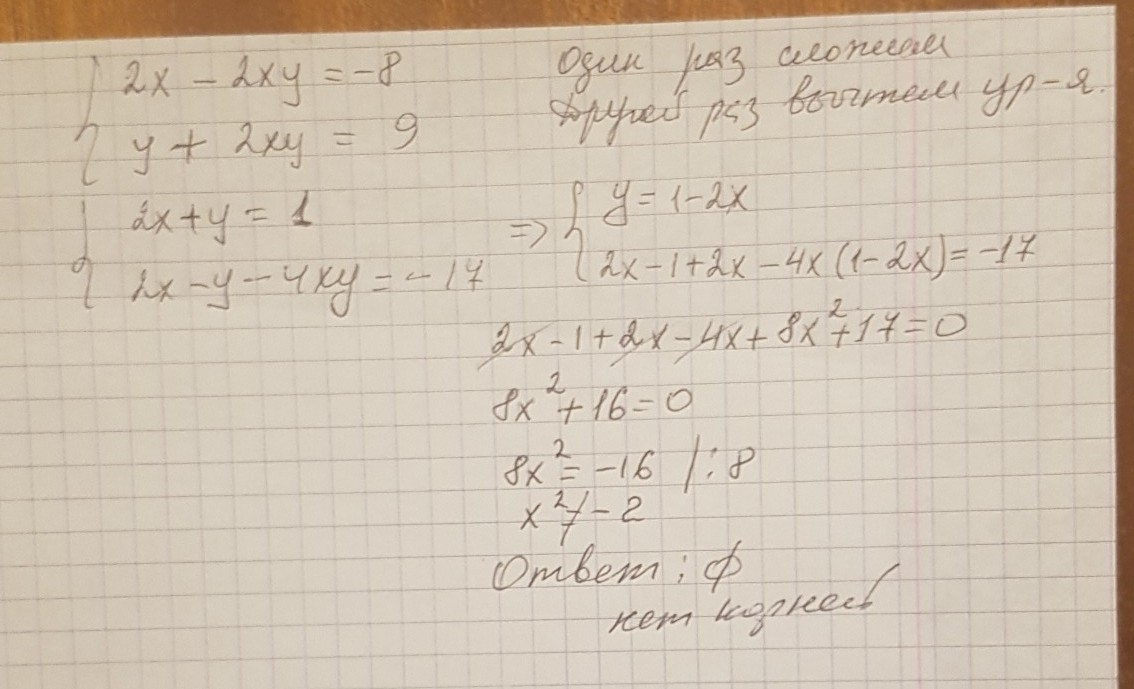 2x - 2xy = -8
y + 2xy = 9
Один раз сложим
Другой раз вычтем ур-я.
2x + y = 1
2x - y - 4xy = -17
=> y = 1 - 2x
2x - 1 + 2x - 4x (1 - 2x) = -17
2x - 1 + 2x - 4x + 8x² + 17 = 0
8x² + 16 = 0
8x² = -16 | : 8
x² ≠ -2
Ответ: ф
нет корней